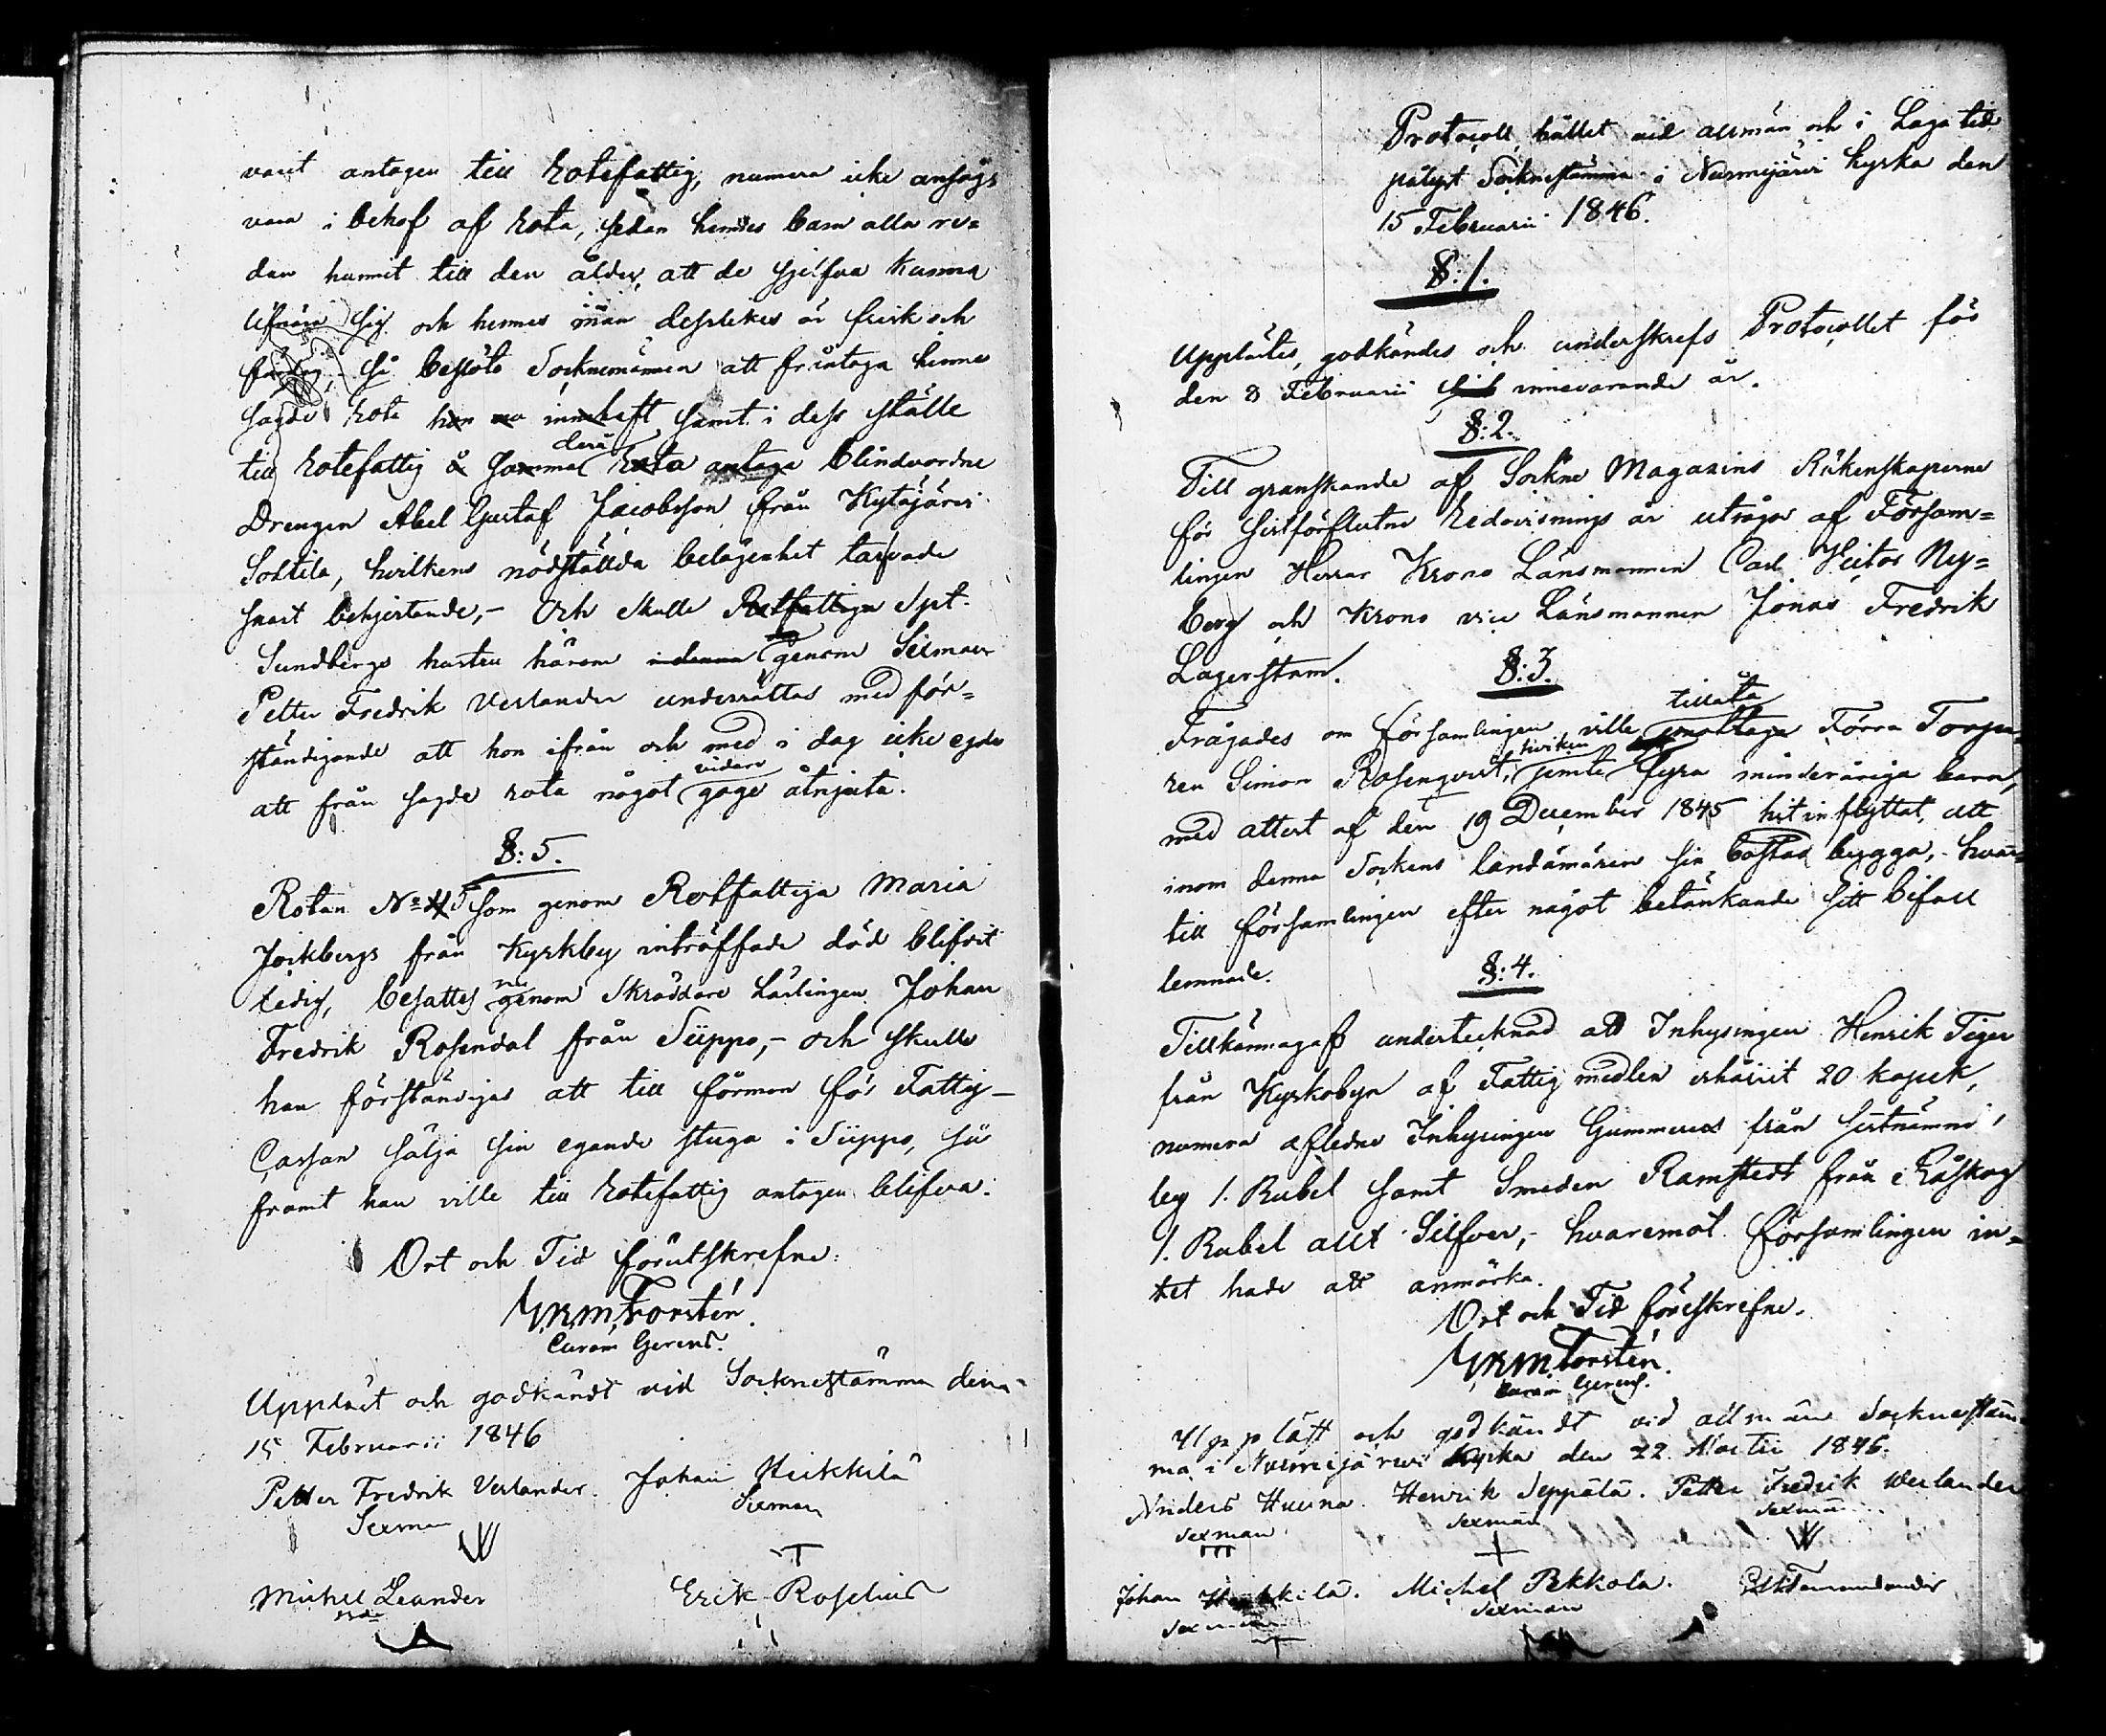 varit antagen till Rotefattig, numera icke ansågs
vara i behof af Rota, sedan hennes barn alla re=
dan hunnit till den ålder, att de sjelfva kunna
sig och hennes man desslikes är frisk och
så beslöto Socknemännen att fråntaga henne
sagde Rota hon nu innehaft samt i dess ställe
till Rotefattig å samma Rota antaga blindvordne
derå
Drengen Abel Gustaf Jacobsson från Kytäjärvi
Soltila, hvilkens nödställda belägenhet tarfvade
snart behjertande,- Och skulle Rotfattiga Spt.
Sundbergs hustru härom genom Sexman
Petter Fredrik Verlander underrättas med för=
ständigande att hon ifrån och med i dag icke egde
att från sagde rota något vidare gage åtnjuta.
§: 5.
Rotan No 5 som genom Rotfattiga Maria
Jockbergs från Kyrkby inträffade död blifvit
ledig, besattes nu genom Skräddare Lärlingen Johan
Fredrik Rosendal från Siippo,- och skulle
han förständigas att till förmon för Fattig-
Cassan sälja sin egande stuga i Siippo, så
framt han ville till Rotefattig antagen blifva.
Ort och Tid förutskrefne:
Forstén.
Curam Gerens.
Uppläst och godkändt vid Sockenstämma den
15 Februarii 1846
Petter Fredrik Verlander. Johan Heikkilä
Sexman Sexman
Michel Leander Erik Roselius
Protocoll, hållet vid allmän och i Laga tid
pålyst Socknestämma i Nurmijärvi kyrka den
15 Februarii 1846.
§: 1.
Upplästes, godkändes och underskrefs Protocollet för
den 8 Februarii innevarande år.
§: 2.
Till granskande af Sockne Magasins Räkenskaperne
för sistförflutne Redovisnings år utsågos af Försam=
lingen Herrar Krono Länsmannen Carl Victor Ny=
berg och Krono vice Länsmannen Jonas Fredrik
Lagerstam.
§: 3.
tillåta
Frågades om församlingen ville emottaga Förra Torpa=
ren Simon Rosenqvist, hvilken jemte fyra minderåriga barn,
med attest af den 19 December 1845 hit inflyttat, att
inom denna Sockens landamären sin bostad bygga,- hvar=
till församlingen efter något betänkande sitt bifall
lemnade.
§: 4.
Tillkännagaf undertecknad att Inhysingen Henrik Tiger
från Kyrkobyn af Fattig medlen erhållit 20 kopek,
numera afledne Inhysingen Gummerus från sistnämnde
by 1. Rubel samt Smeden Ramstedt från Råskog
1. Rubel allt Silfver,- hvaremot församlingen in=
tet hade att anmärka.
Ort och Tid föreskrefne.
Forstén.
Curam Gerens.
Uppläst och godkändt vid allmän Socknestäm=
ma i Nurmijärvi Kyrka den 22 Martii 1846.
Anders Huuna. Henrik Seppälä. Petter Fredrik Werlander
Sexman Sexman Sexman
Johan Heikkilä. Michel Pekkola.
Sexman Sexman